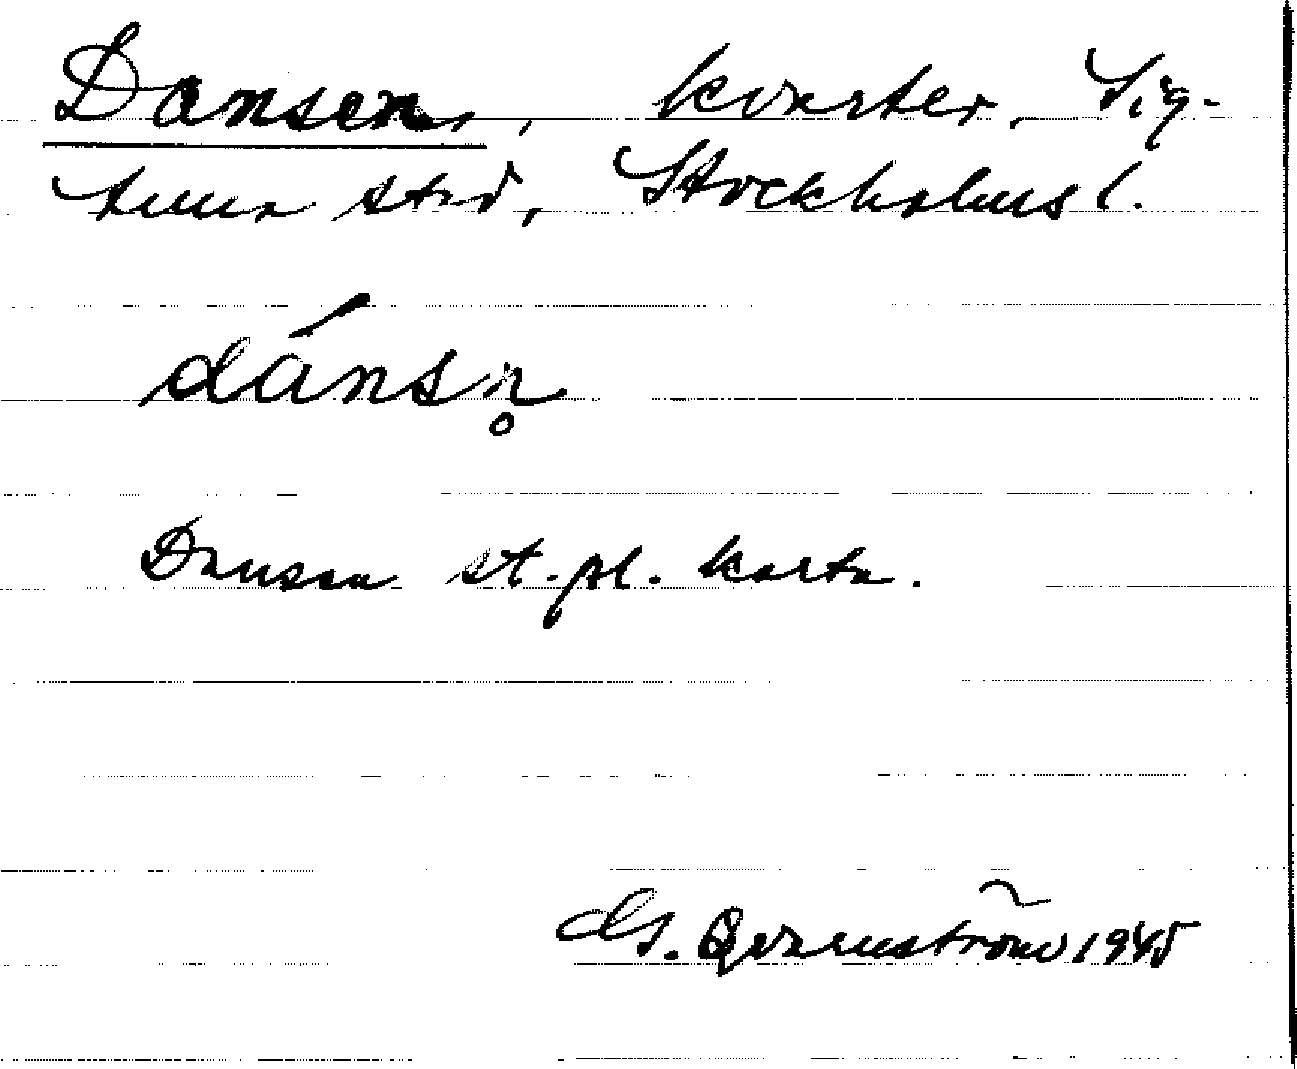 Dansen, kvarter, Sig-
tuna stad, Stockholms l.
dánsn̥
Dansen st.pl. karta.
G. Qvarnström 1945